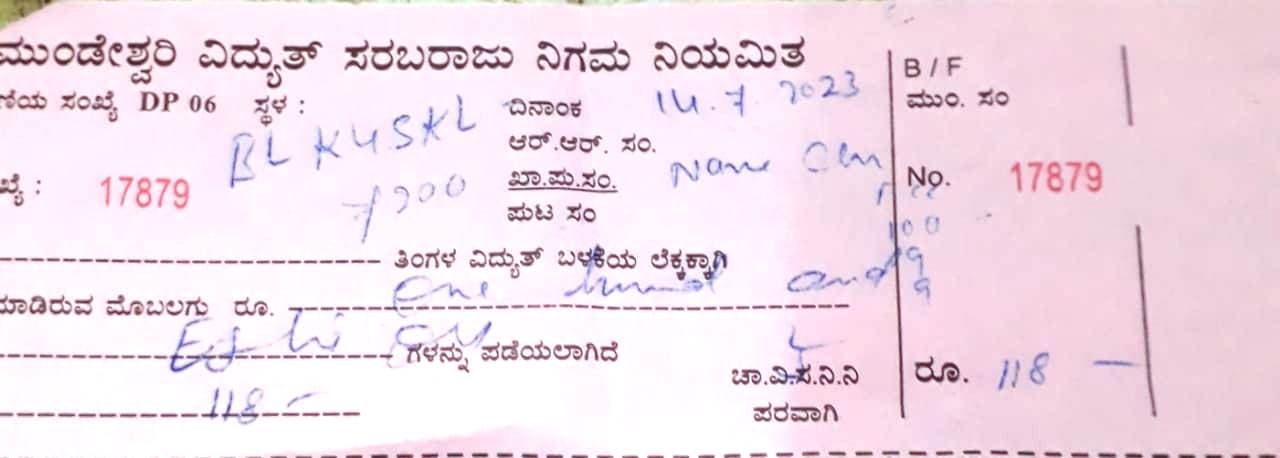 ಮುಂಡೇಶ್ವರಿ ವಿದ್ಯುತ್ ಸರಬರಾಜು ನಿಗಮ ನಿಯಮಿತ
ಣಿಯ ಸಂಖ್ಯೆ DP 06 ಸ್ಥಳ :
BL K4SKL
7200
ಖ್ಯೆ : 17879
ದಿನಾಂಕ 14.7.2023
ಆರ್.ಆರ್. ಸಂ.
ಖಾ.ಪು.ಸಂ. Name
ಪುಟ ಸಂ
ತಿಂಗಳ ವಿದ್ಯುತ್ ಬಳಕೆಯ ಲೆಕ್ಕಕ್ಕಾಗಿ
ಮಾಡಿರುವ ಮೊಬಲಗು ರೂ. One and
ಗಳನ್ನು ಪಡೆಯಲಾಗಿದೆ
118 -
ಚಾ.ವಿ.ಸ.ನಿ.ನಿ
ಪರವಾಗಿ
B / F
ಮುಂ. ಸಂ
No. 17879
100
9
9
ರೂ. 118 —